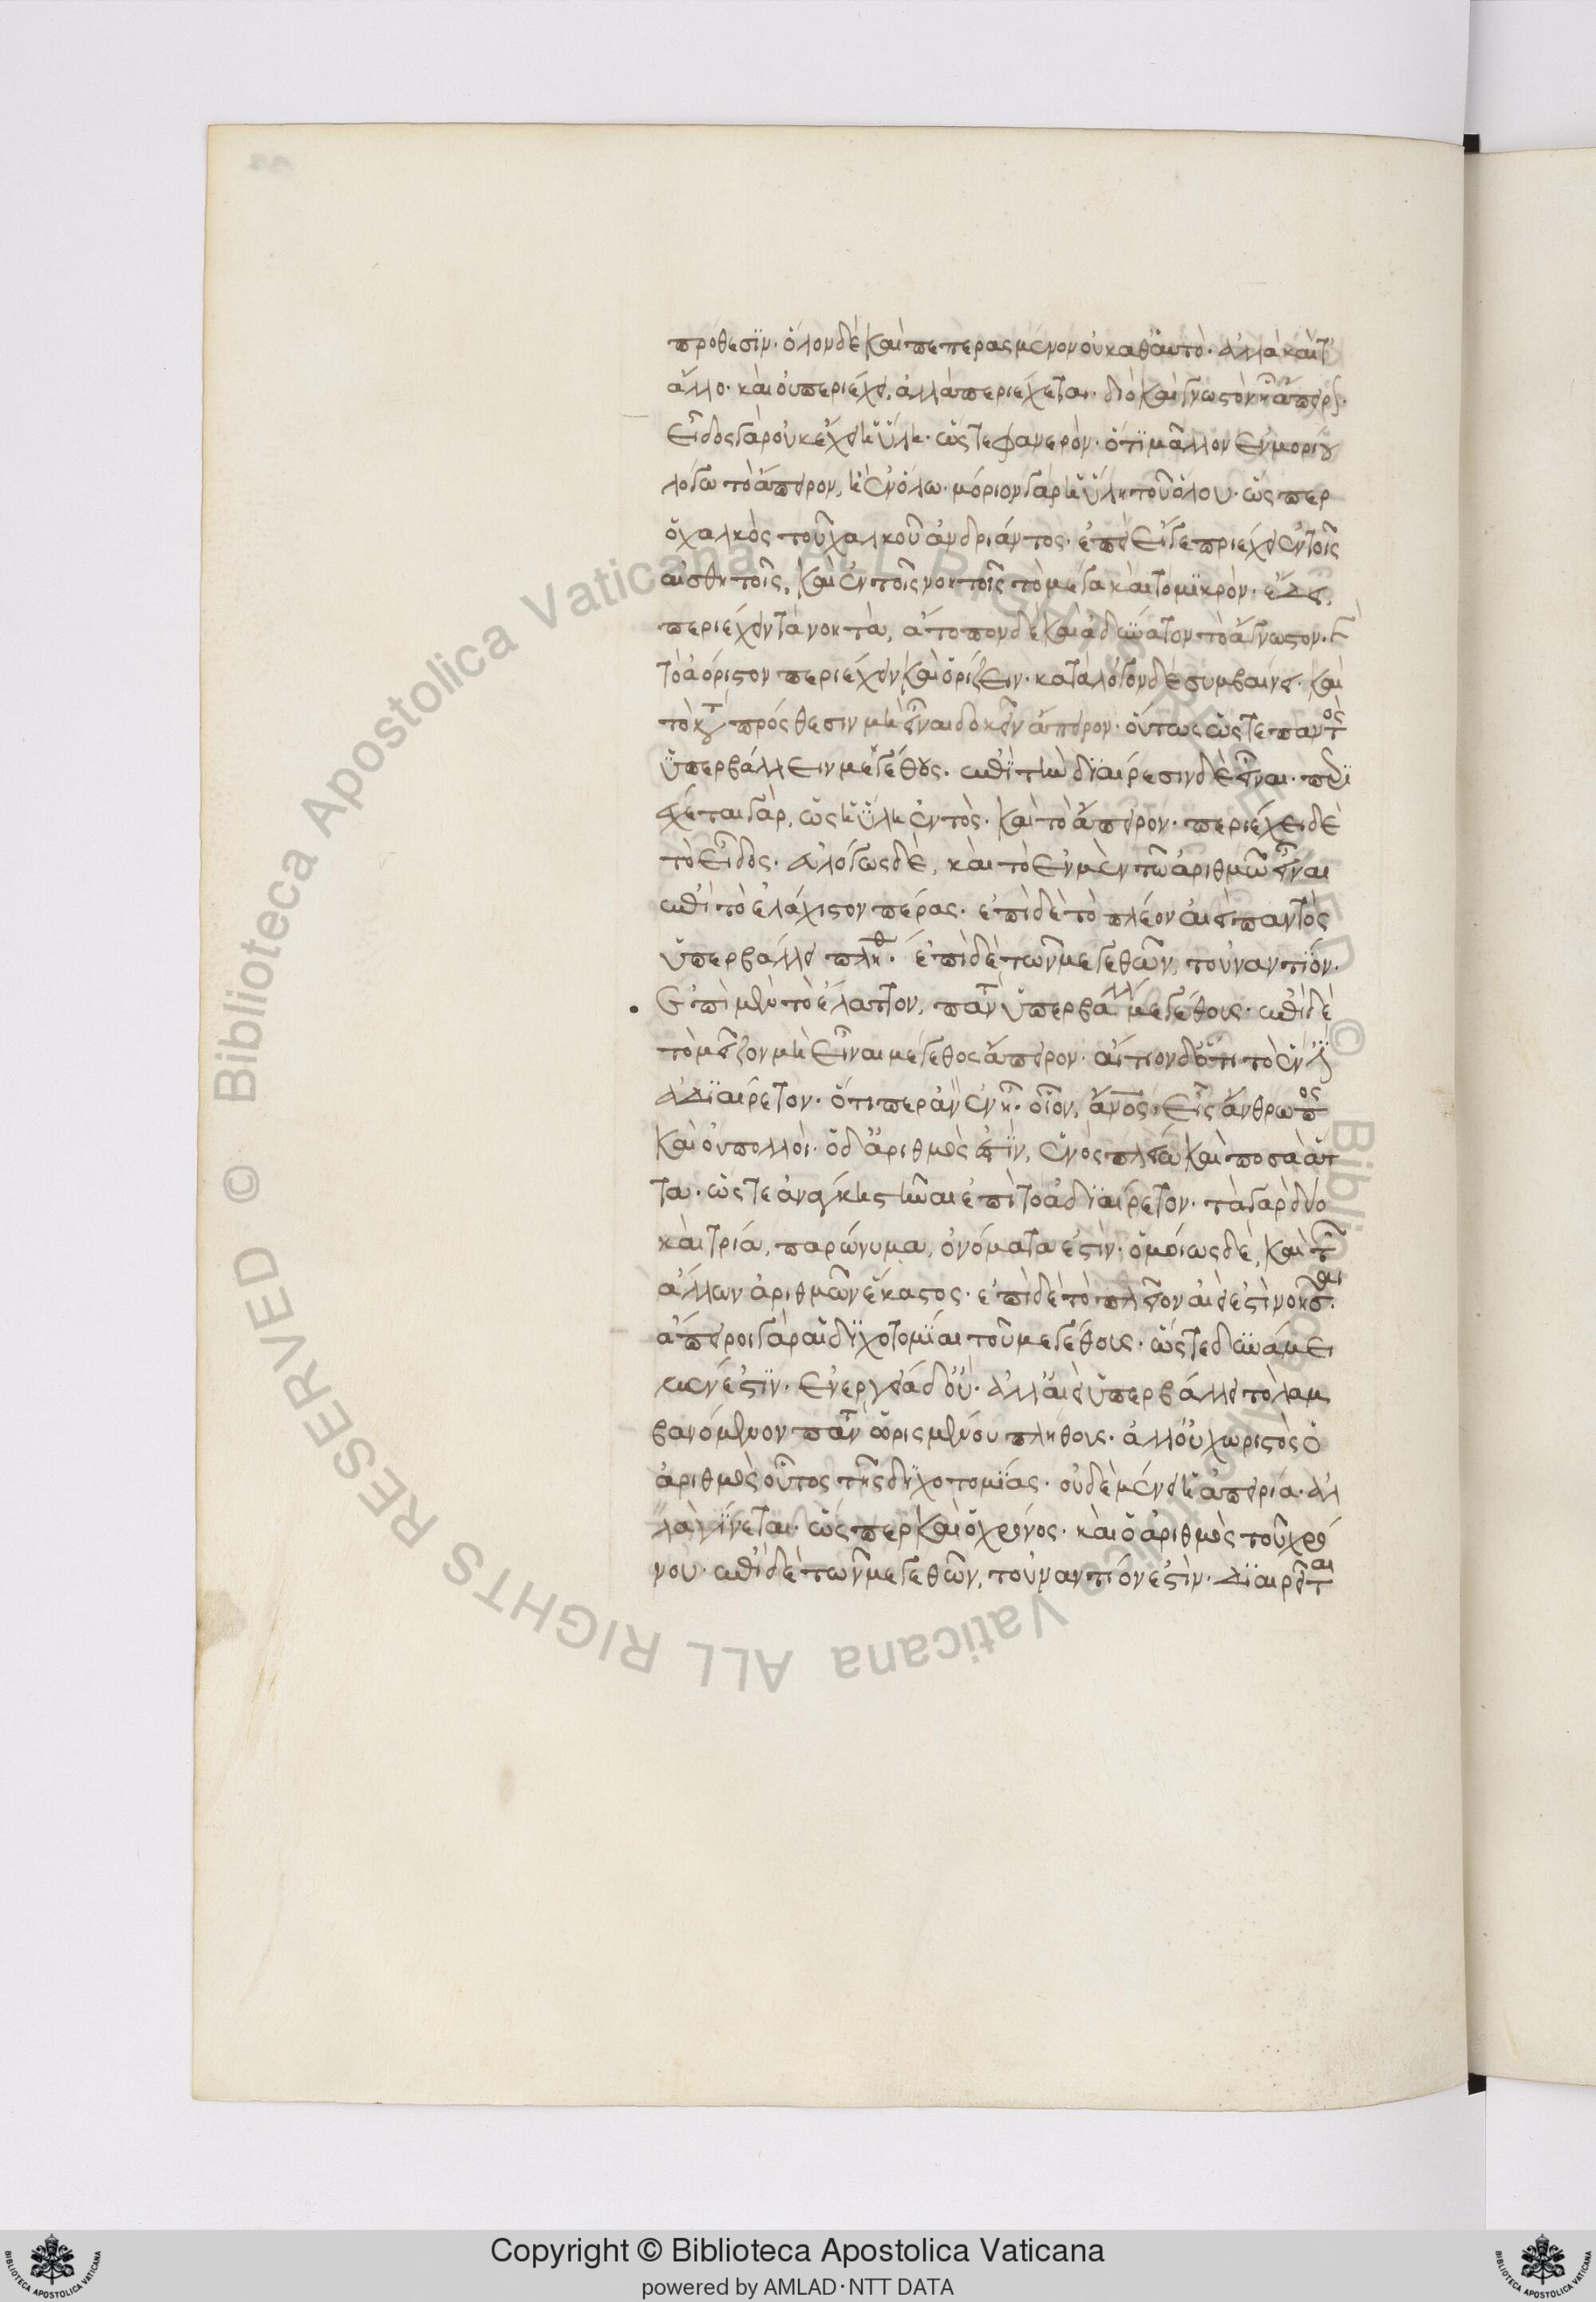 πρόθεσϊν· ὅλον δὲ καὶ πεπερασμένον οὐ καθ' αὑτὸ· ἀλλὰ κατ'
ἄλλο· καὶ οὐ περιέχει, ἀλλὰ περιέχεται· διὸ καὶ ἄγνωστον ἧ ἄπειρον·
εἶδος γὰρ οὐκ ἔχει ἡ ὕλη· ὥστε φανερὸν· ὅτϊ μᾶλλον ἐν μορίου
λόγω τὸ ἄπειρον, ἢ ἐν ὅλω· μόριον γὰρ ἡ ὕλη τοῦ ὅλου· ὥσπερ
ὁ χαλκὸς τοῦ χαλκοῦ ἀνδριάντος· ἐπεὶ εἴγε πριέχει ἐν τοῖς
αἰσθητοῖς, καὶ ἐν τοῖς νοητοῖς τὸ μέγα καὶ τὸ μϊκρὸν· ἔδει,
περιέχειν τὰ νοητὰ, ἄτοπον δὲ καὶ ἀδύνατον τὸ ἄγνωστον· καὶ
τὸ ἀόριστον περιέχειν καὶ ὁρίζειν· κατὰ λόγον δὲ συμβαίνει· καὶ
τὸ κατὰ πρόσθεσιν μὴ εἶναι δοκεῖν ἄπειρον· οὕτως ὥστε παντὸς
ὑπερβάλλειν μεγέθους· ἐπὶ τὴν δϊαίρεσιν δὲ εἶναι· περϊ
έχεται γὰρ, ὡς ἡ ὕλη ἐντὸς· καὶ τὸ ἄπειρον· περιέχει δὲ
τὸ εἶδος· εὐλόγως δὲ, καὶ τὸ ἐν μὲν τῶ ἀριθμῶ εἶναι
ἐπὶ τὸ ἐλάχιστον πέρας· ἐπὶ δὲ τὸ πλέον αἰεὶ παντὸς
ὑπερβάλλει πλήθ· ἐπὶ δὲ τῶν μεγεθῶν, τοὐναντϊόν·
ἐπὶ μὲν τὸ ἔλαττον, παντ ὑπερβάλλ μεγέθους· ἐπὶ δὲ
τὸ μεῖζον μὴ εἶναι μέγεθος ἄπειρον· αἴτιον δ' ὅτι τὸ ἕν ἐστϊν
ἀδϊαίρετον· ὅτι περ ἂν ἓν ἦ· οἷον, ἄνος, εἷς ἄνθρωπος
καὶ οὐ πολλοὶ· ὁ δ' ἀριθμὸς ἐστϊν, ἑνὸς πλείω καὶ ποσὰ ἄτ
τα· ὥστε ἀνάγκη στῆναι ἐπὶ τὸ ἀδϊαίρετον· τὰ γὰρ δύο
καὶ τρία, παρώνυμα, ὀνόματα ἐστὶν· ὁμοίως δὲ, καὶ τῶν
ἄλλων ἀριθμῶν ἕκαστος· ἐπὶ δὲ τὸ πλεῖον αἰεὶ ἐστὶ νοῆσαι·
ἄπειροι γὰρ αἱ δϊχοτομϊαι τοῦ μεγέθους· ὥστε δυνάμει
μὲν ἐστϊν· ἐνεργεία δ' οὔ· ἀλλ' αἰεὶ ὑπερβάλλει τὸ λαμ
βανόμενον παντ ὡρισμένου πλήθους· ἀλλ' οὐ χωριστὸς ὁ
ἀριθμὸς οὗτος τῆς δϊχοτομϊας· οὐδὲ μένει ἡ ἀπειρία· ἀλ
λὰ γίνεται· ὥσπερ καὶ ὁ χρόνος· καὶ ὁ ἀριθμὸς τοῦ χρό
νου· ἐπὶ δὲ τῶν μεγεθῶν, τοὐναντίον ἐστὶν· δϊαιρεῖται
Copyright © Biblioteca Apostolica Vaticana
powered by AMLAD·NTT DATA
© Biblioteca Apostolica Vaticana ALL RIGHTS RESERVED
© Biblioteca Apostolica Vaticana ALL RIGHTS RESERVED